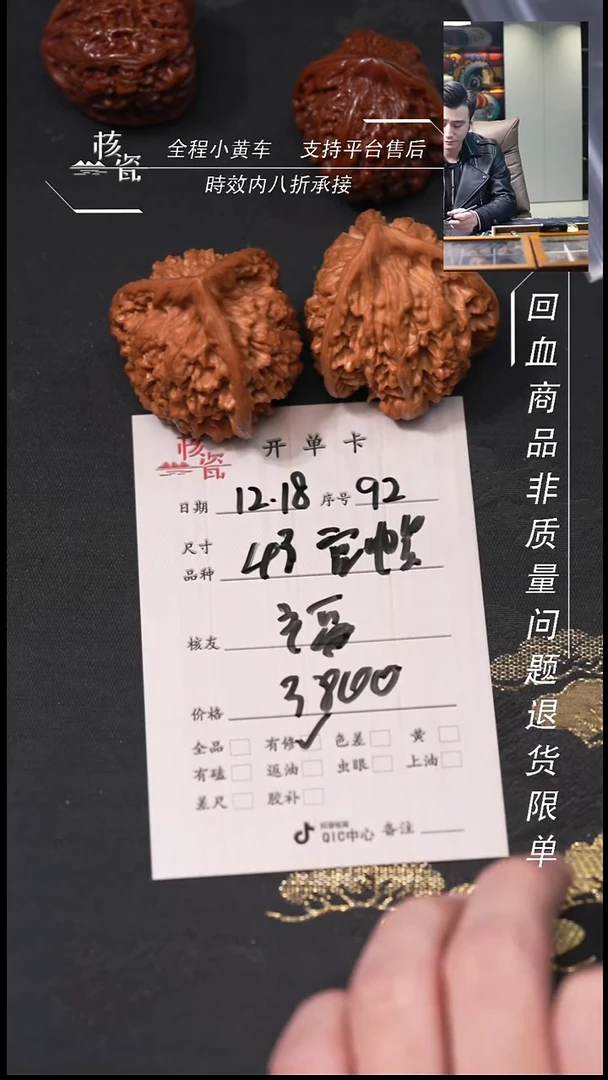 核瓷
全程小黄车 支持平台售后
時效内八折承接
回血商品非质量问题退货限单
核瓷
开单卡
日期 12.18 序号 92
尺寸
品种 43 官帽
核友 福
价格 3800
全品 有修 ✓ 色差 黄
有磕 返油 虫眼 上油
差尺 胶补
QIC中心 备注